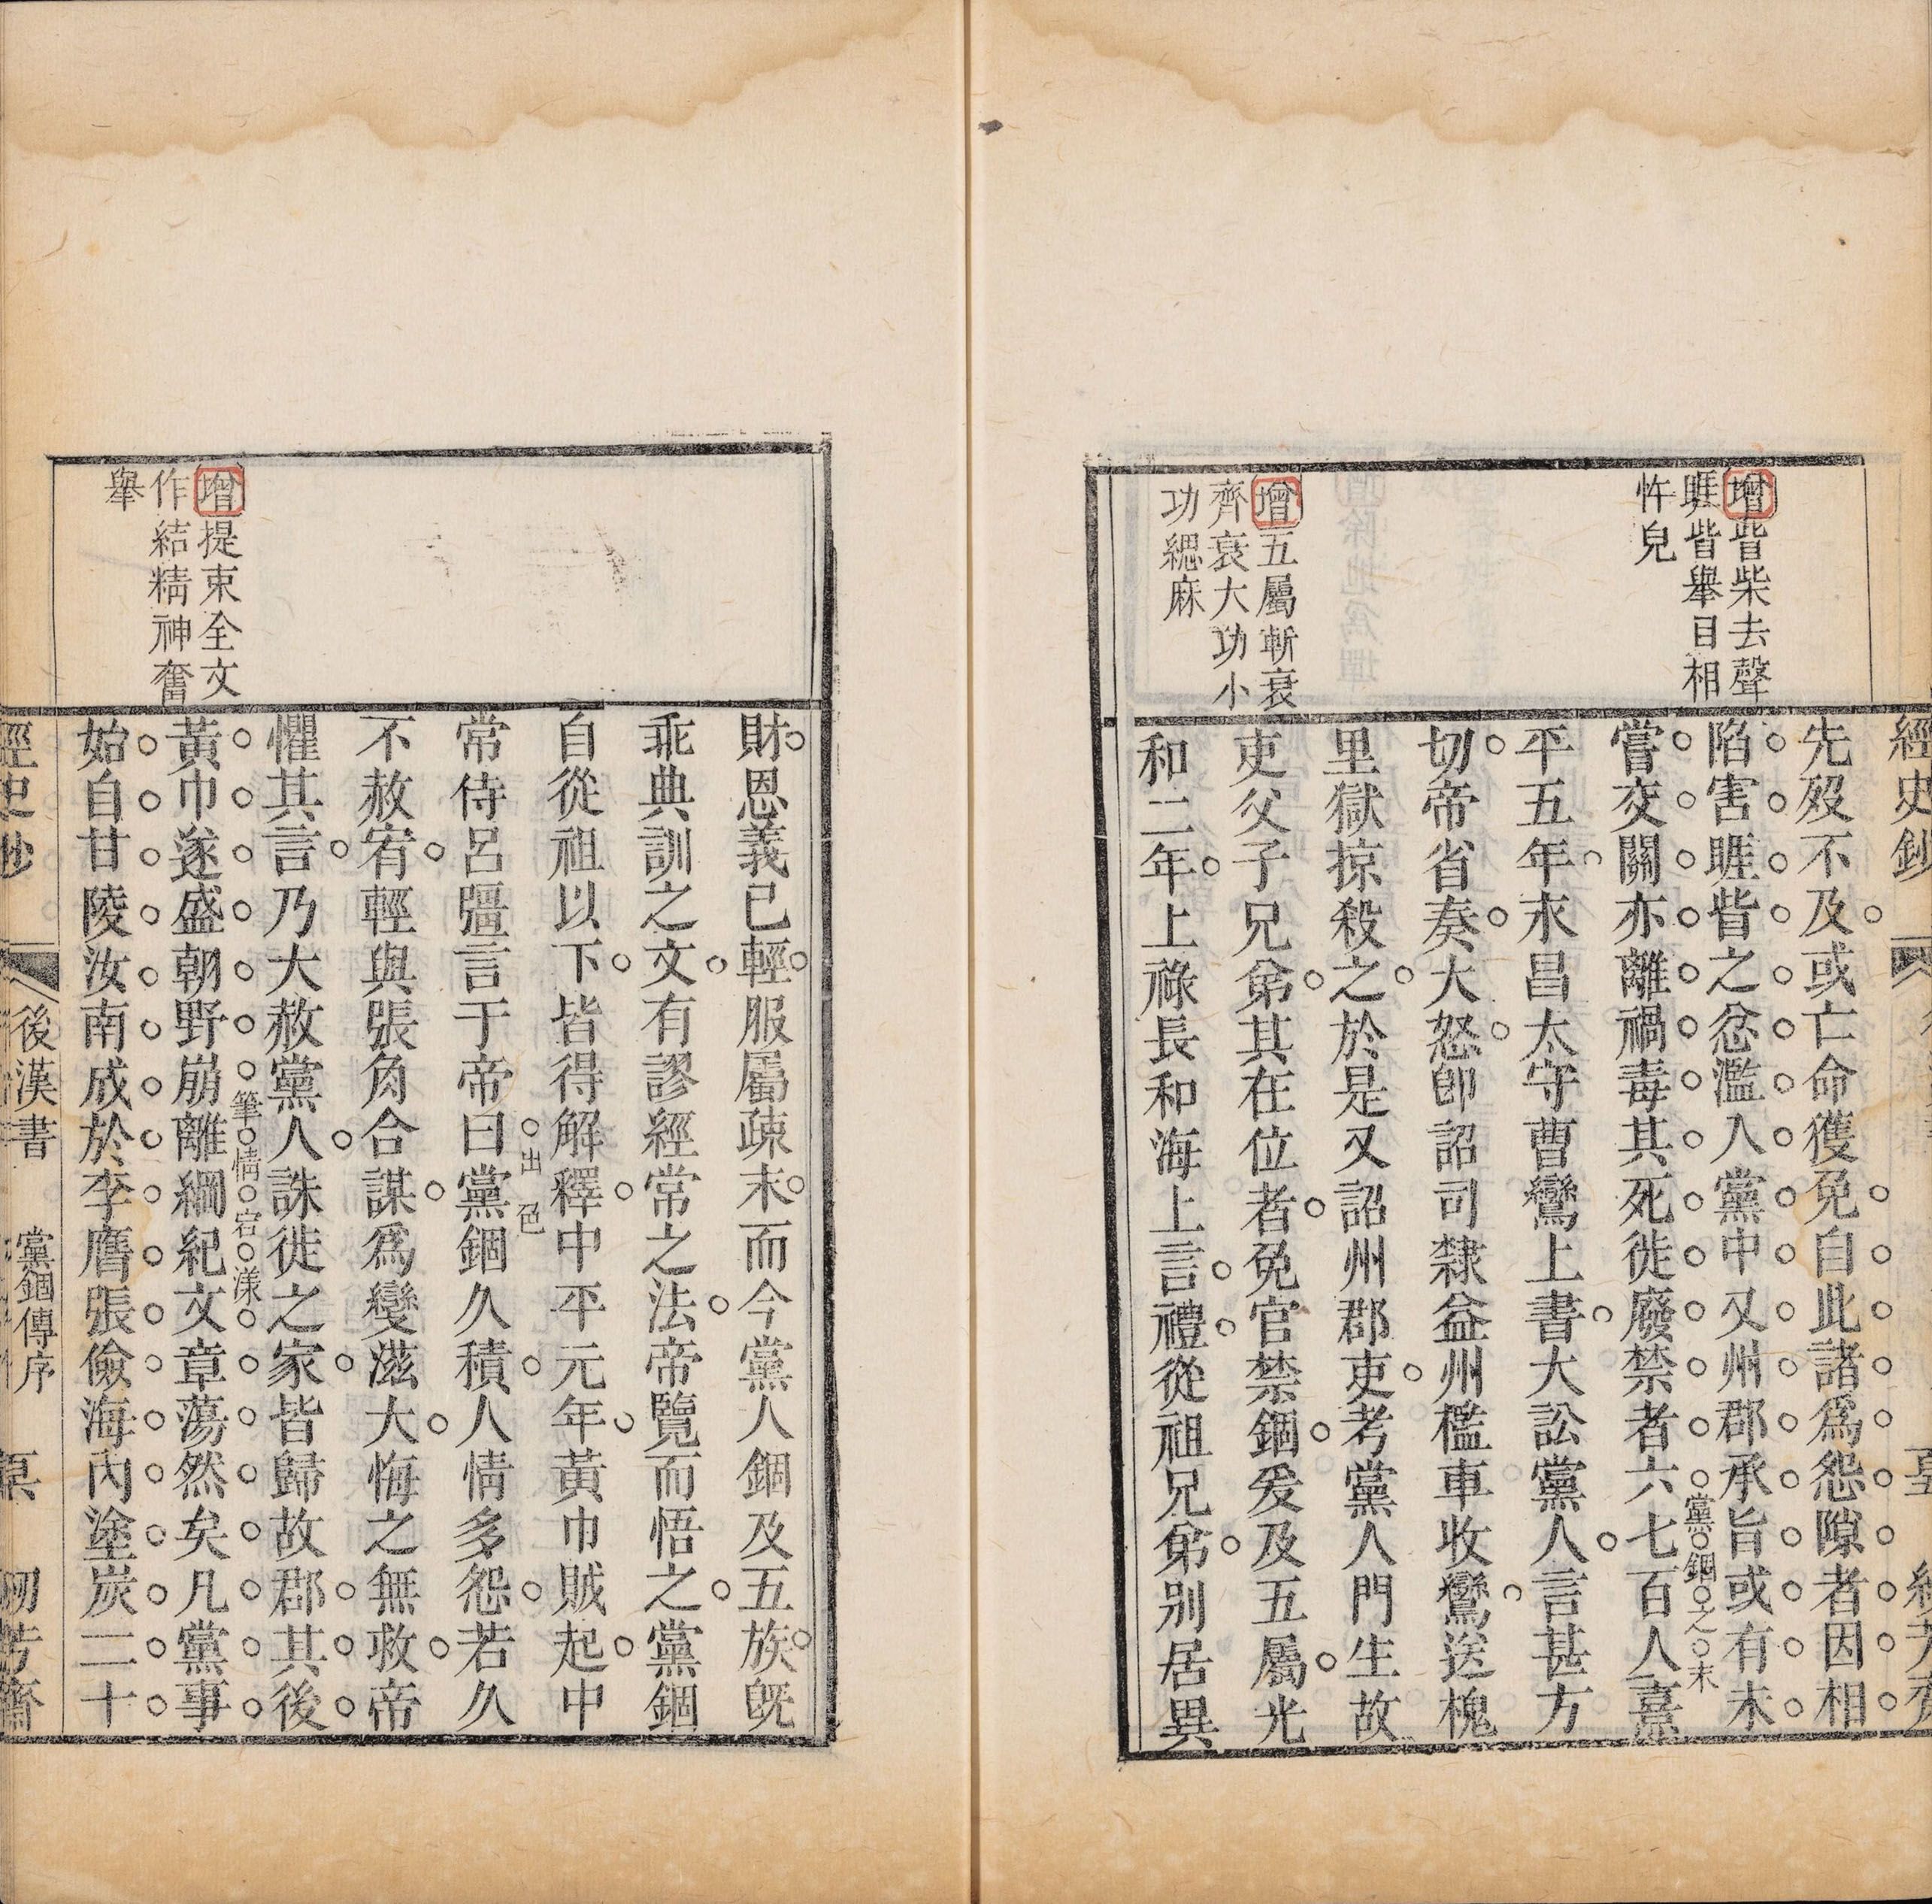 經史鈔
增眥柴去聲
睚眥舉目相
忤皃
增五屬斬衰
齊衰大功小
功緦麻
先歿不及或亡命獲免自此諸爲怨隙者因相
陷害睚眥之忿濫入黨中又州郡承旨或有未
黨錮之末
嘗交關亦離禍毒其死徙廢禁者六七百人熹
平五年永昌太守曹鸞上書大訟黨人言甚方
切帝省奏大怒卽詔司隸益州檻車收鸞送槐
里獄掠殺之於是又詔州郡吏考黨人門生故
吏父子兄弟其在位者免官禁錮爰及五屬光
和二年上祿長和海上言禮從祖兄弟別居異
增提束全文
作結精神奮
舉
財恩義已輕服屬疎末而今黨人錮及五族旣
乖典訓之文有謬經常之法帝覽而悟之黨錮
自從祖以下皆得解釋中平元年黃巾賊起中
出色
常侍呂彊言于帝曰黨錮久積人情多怨若久
不赦宥輕與張角合謀爲變滋大悔之無救帝
懼其言乃大赦黨人誅徙之家皆歸故郡其後
筆情宕漾
黃巾遂盛朝野崩離綱紀文章蕩然矣凡黨事
始自甘陵汝南成於李膺張儉海內塗炭二十
經史鈔
後漢書
黨錮傳序